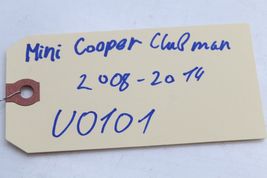 Mini Cooper Clubman
2008-2014
U0101